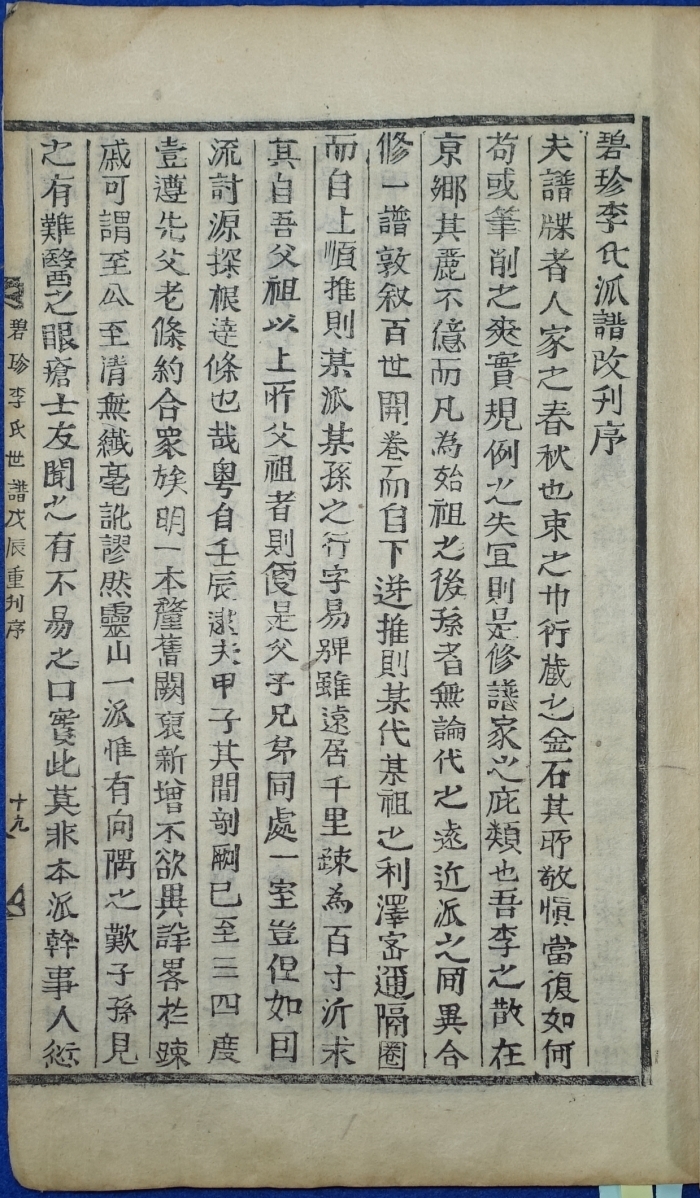 碧珍李氏派譜改刋序
夫譜牒者人家之春秋也束之巾衍蔵之金石其所敬愼當復如何
苟或筆削之爽實規例之失宜則是修譜家之疵類也吾李之散在
京鄉其麗不億而凡為始祖之後孫者無論代之遠近派之同異合
修一譜敦叙百世開卷而自下逆推則某代某祖之利澤密邇隔圈
而自上順推則某派某孫之行字易牌雖遠居千里踈為百寸泝求
其自吾父祖以上所父祖者則便是父子兄弟同處一室豈但如回
流討源探根達條也哉粤自壬辰逮夫甲子其間剞劂已至三四度
壹遵先父老條約合衆族明一本釐舊闕裒新增不欲異詳畧於踈
戚可謂至公至清無纖毫訛謬然靈山一派惟有向隅之歎子孫見
之有難醫之眼瘡士友聞之有不易之口實此莫非本派幹事人愆
碧珍李氏世譜戊辰重刋序 十九